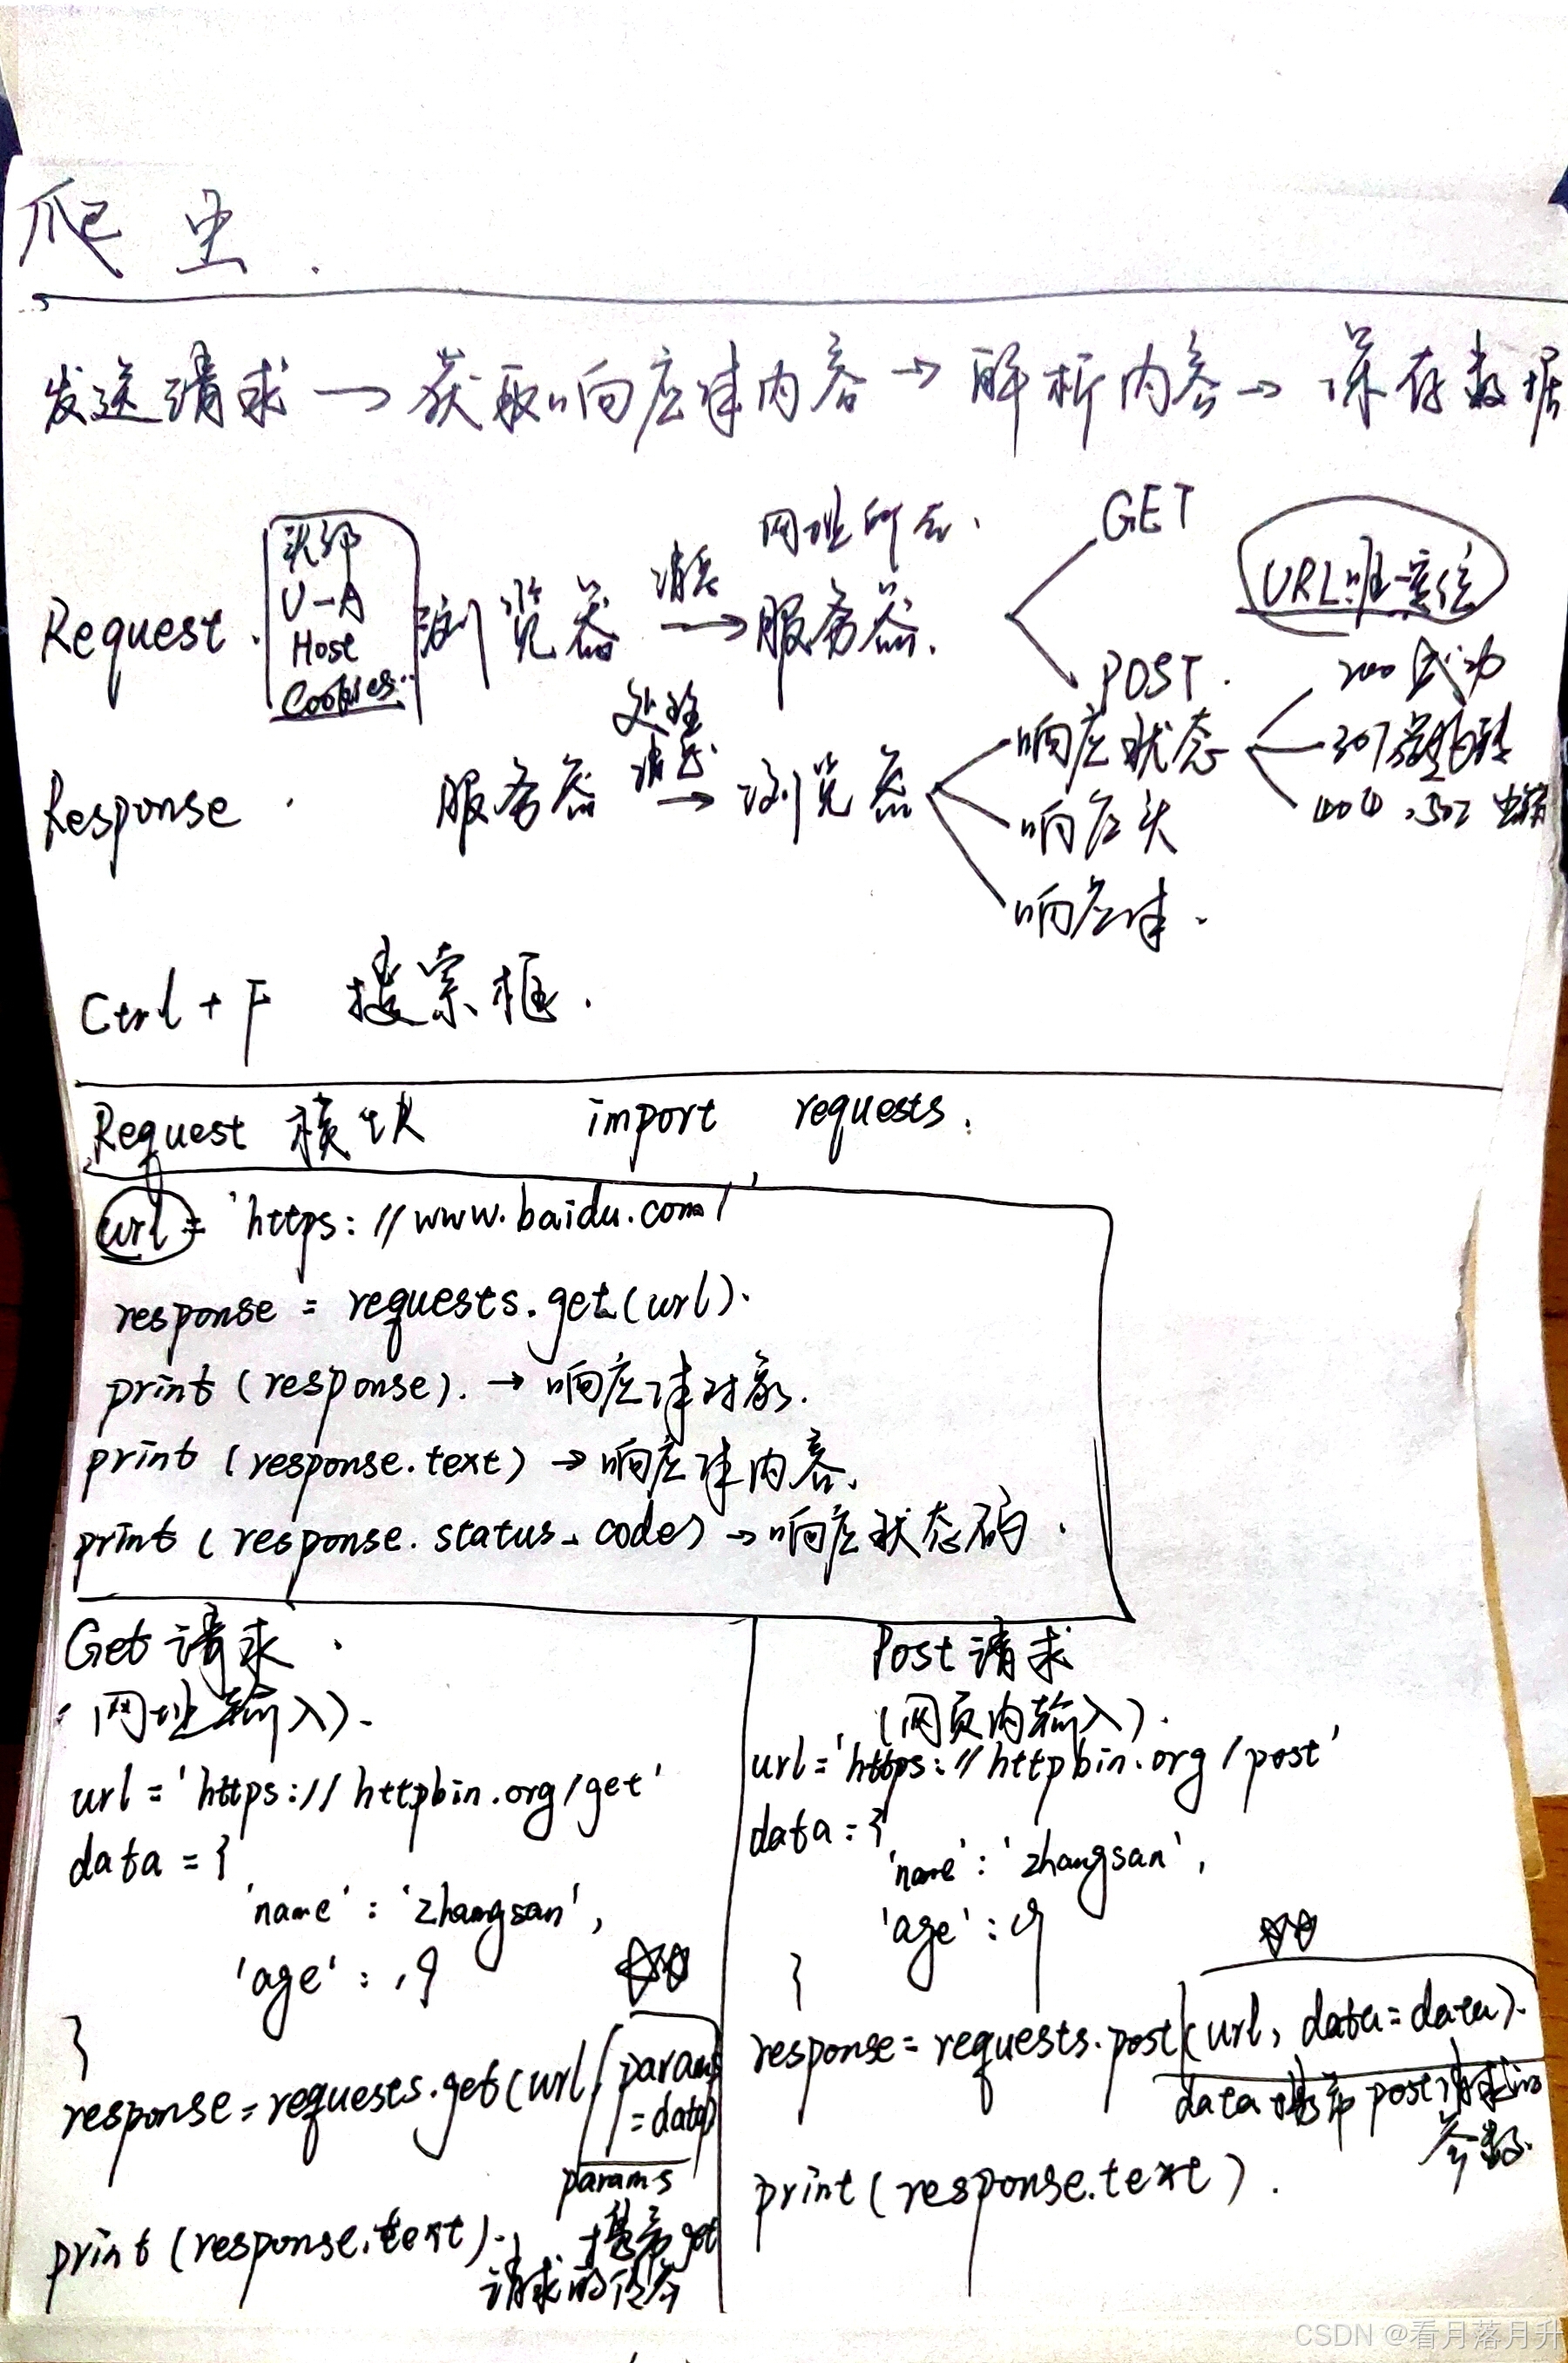 爬虫.
发送请求 → 获取响应体内容 → 解析内容 → 保存数据
网址所在.
GET
头部
U-A
Host
Cookies..
Request.
浏览器
消息
→
服务器.
URL唯一定位
POST.
200 成功
处理
消息
响应状态
Response.
服务器
→
浏览器
响应头
404, 502
响应体.
Ctrl + F 搜索框.
Request 模块 import requests.
url = 'https://www.baidu.com/'
response = requests.get(url).
print (response). → 响应体对象.
print (response.text) → 响应体内容.
print (response.status_code) → 响应状态码.
Get 请求.
(网址输入).
url = 'https://httpbin.org/get'
data = {
'name' : 'zhangsan',
'age' : 19
}
response = requests.get(url, params
=data)
params
携带 get
请求的
print (response.text).
Post 请求
(网页内输入).
url = 'https://httpbin.org/post'
data = {
'name' : 'zhangsan',
'age' : 19
}
response = requests.post(url, data=data).
data 携带 post 请求的
参数.
print (response.text).
CSDN @看月落月升